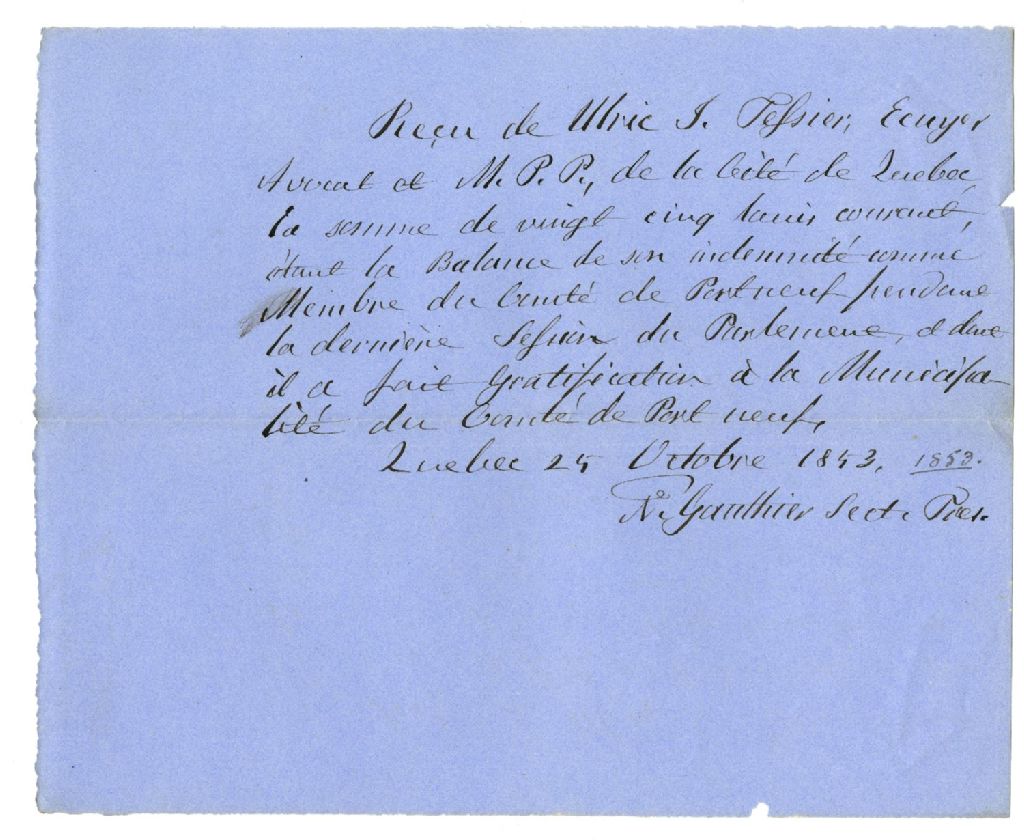 Reçu de Ulric J. Tessier, Ecuyer
Avocat et M. P. P., de la Cité de Quebec,
la somme de vingt cinq louis courant,
étant la Balance de son indemnité comme
Membre du Comté de Portneuf pendant
la dernière Session du Parlement, et dont
il a fait Gratification à la Municipa-
lité du Comté de Port neuf,
Quebec 25 Octobre 1853, 1853.
Ne. Gauthier Sect. Tres.